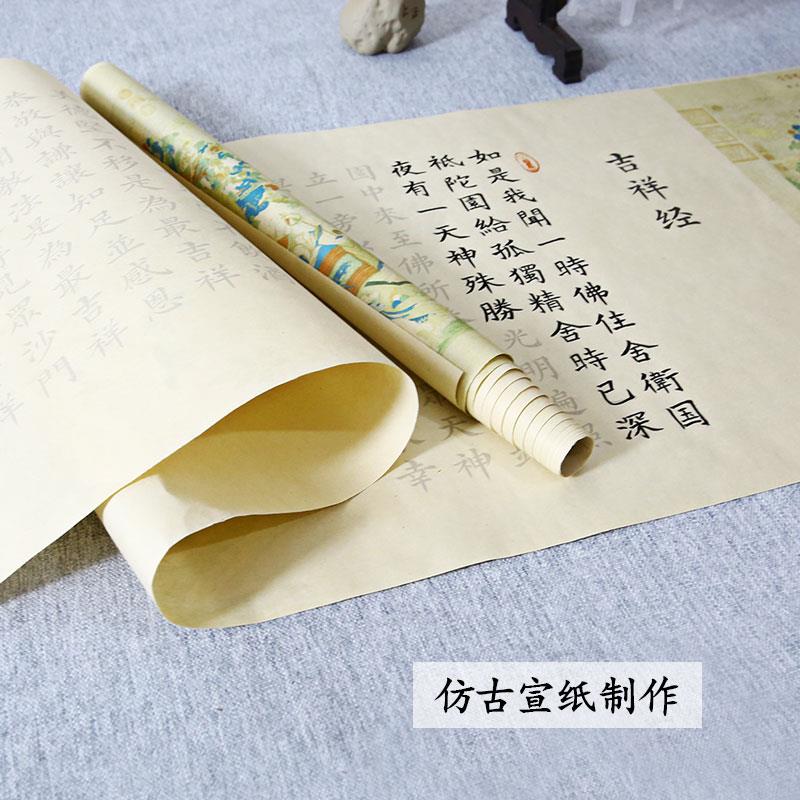 吉祥经
如是我聞一時佛住舍衛国
祗陀園給孤獨精舍時已深
夜有一天神殊勝光明遍照
園中来至佛所
立一旁
天神
不移是為最吉祥
恭敬與謙讓知足並感恩
聞教法是為最吉祥
眾沙門
祥
仿古宣纸制作